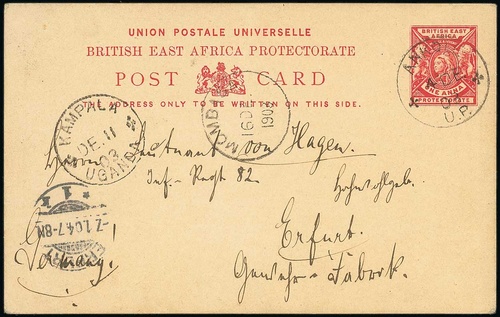 UNION POSTALE UNIVERSELLE
BRITISH EAST AFRICA PROTECTORATE
POST CARD
THE ADDRESS ONLY TO BE WRITTEN ON THIS SIDE.
BRITISH EAST
AFRICA
ONE ANNA
PROTECTORATE
U.P.
KAMPALA
DE 11
03
UGANDA
MOMB
16 D
190
Herrn Leutnant von Hagen.
Inf.-Regt 82
Hochwohlgeb.
Erfurt.
Gewehr-Fabrik.
Germany.
* 1 k
7.1.04.7-8N